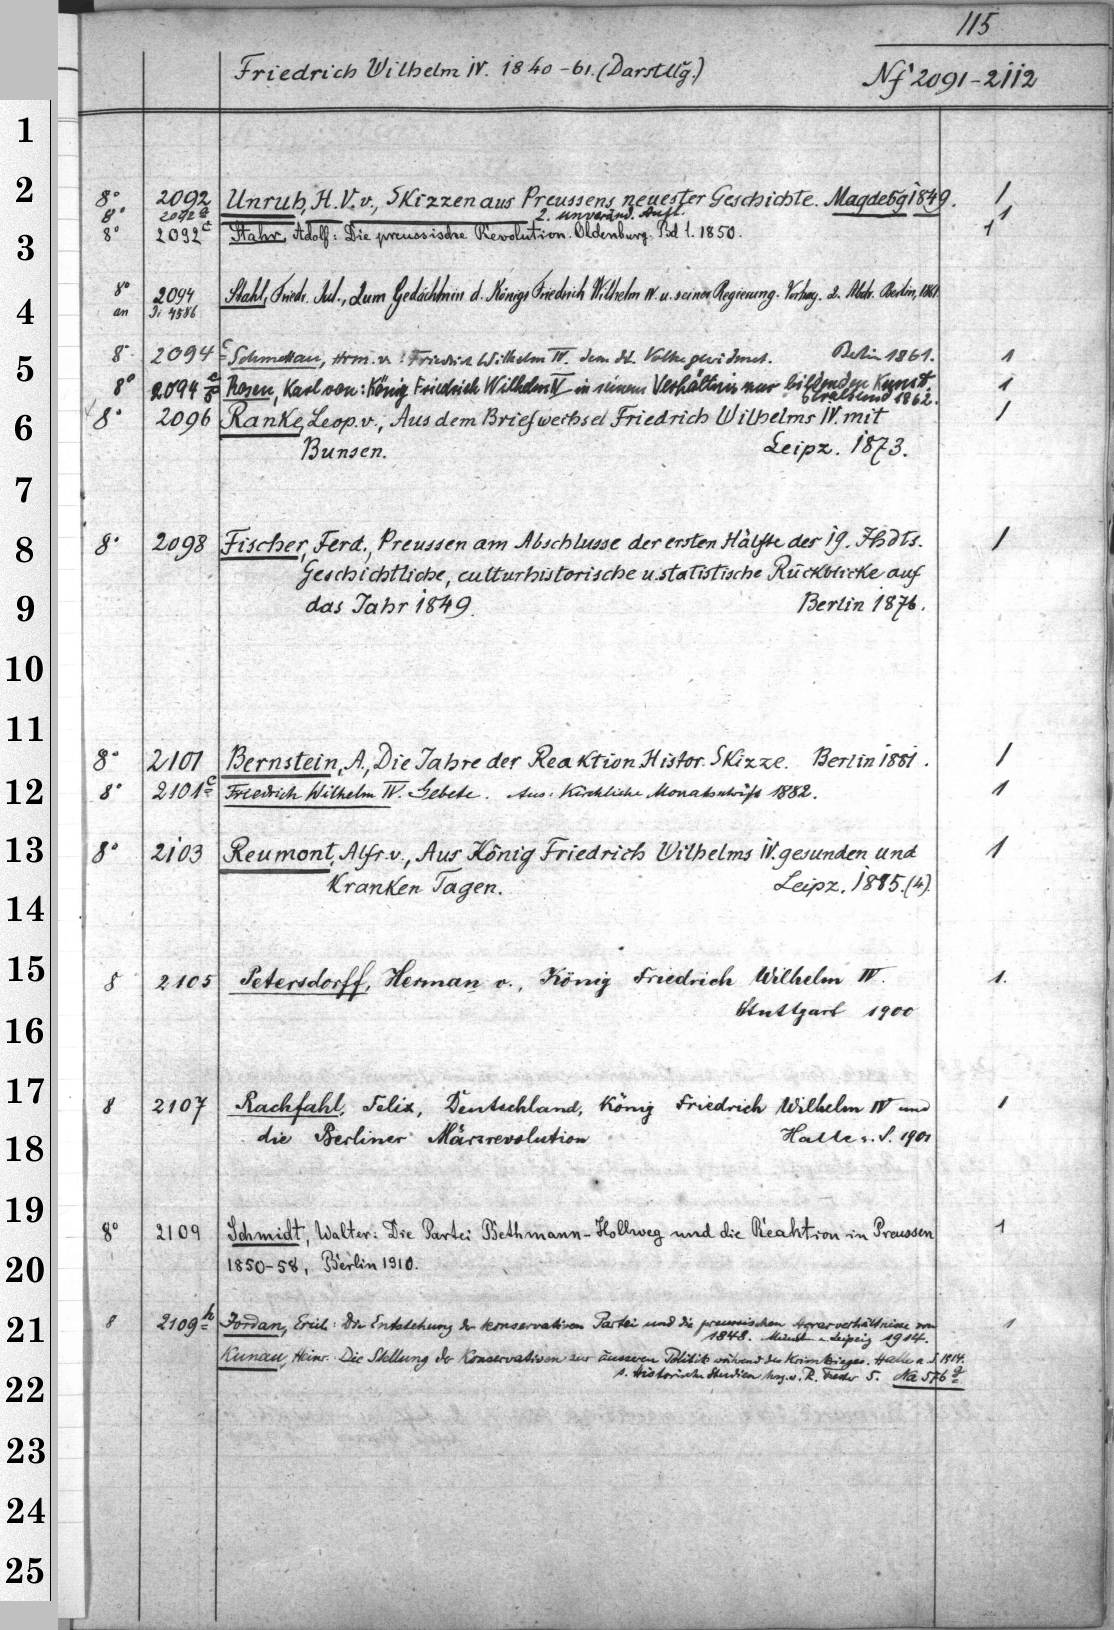 115
Friedrich Wilhelm IV. 1840-61. (Darstllg.)
Nf 2091-2112
1
2
8° 2092 Unruh, H. V. v., Skizzen aus Preussens neuester Geschichte. Magdebg 1849. 1
8° 2092 a 2. unveränd. Aufl. 1
3
8° 2092 c Stahr, Adolf: Die preussische Revolution. Oldenburg. Bd 1. 1850. 1
8° 2094 Stahl, Friedr. Jul., Zum Gedächtnis d. Königs Friedrich Wilhelm IV. u. seiner Regierung. Vortrag. 2. Abdr. Berlin, 1861
4
an Di 4586
8° 2094 c Schmettau, Hrm. v.: Friedrich Wilhelm IV. dem dt. Volke gewidmet. Berlin 1861. 1
5
8° 2094 Rosen, Karl von: König Friedrich Wilhelm IV in seinem Verhältnis zur bildenden Kunst. 1
Stralsund 1862.
8° 2096 Ranke, Leop. v., Aus dem Briefwechsel Friedrich Wilhelms IV. mit 1
6
Bunsen. Leipz. 1873.
7
8
8° 2098 Fischer, Ferd., Preussen am Abschlusse der ersten Hälfte des 19. Jhdts. 1
Geschichtliche, culturhistorische u. statistische Rückblicke auf
9
das Jahr 1849. Berlin 1876.
10
11
8° 2101 Bernstein, A., Die Jahre der Reaktion. Histor. Skizze. Berlin 1881. 1
12
8° 2101 c Friedrich Wilhelm IV. Gebete. Aus: Kirchliche Monatsschrift 1882. 1
13
8° 2103 Reumont, Alfr. v., Aus König Friedrich Wilhelms IV. gesunden und 1
kranken Tagen. Leipz. 1885. (4).
14
15
8 2105 Petersdorff, Herman v., König Friedrich Wilhelm IV. 1.
Stuttgart 1900
16
17
8 2107 Rachfahl, Felix, Deutschland, König Friedrich Wilhelm IV und 1
18
die Berliner Märzrevolution Halle a. S. 1901
19
8° 2109 Schmidt, Walter: Die Partei Bethmann-Hollweg und die Reaktion in Preussen 1
20
1850-58, Berlin 1910.
21
8 2109 h Jordan, Erich: Die Entstehung der konservativen Partei und die preussischen Agrarverhältnisse von 1
1848. Münch. u. Leipzig 1914.
Kunau, Heinr. Die Stellung der Konservativen zur äusseren Politik während des Krimkrieges. Halle a. S. 1914.
22
s. Historische Studien hrsg. v. R. Fester 5. Na 576 g
23
24
25